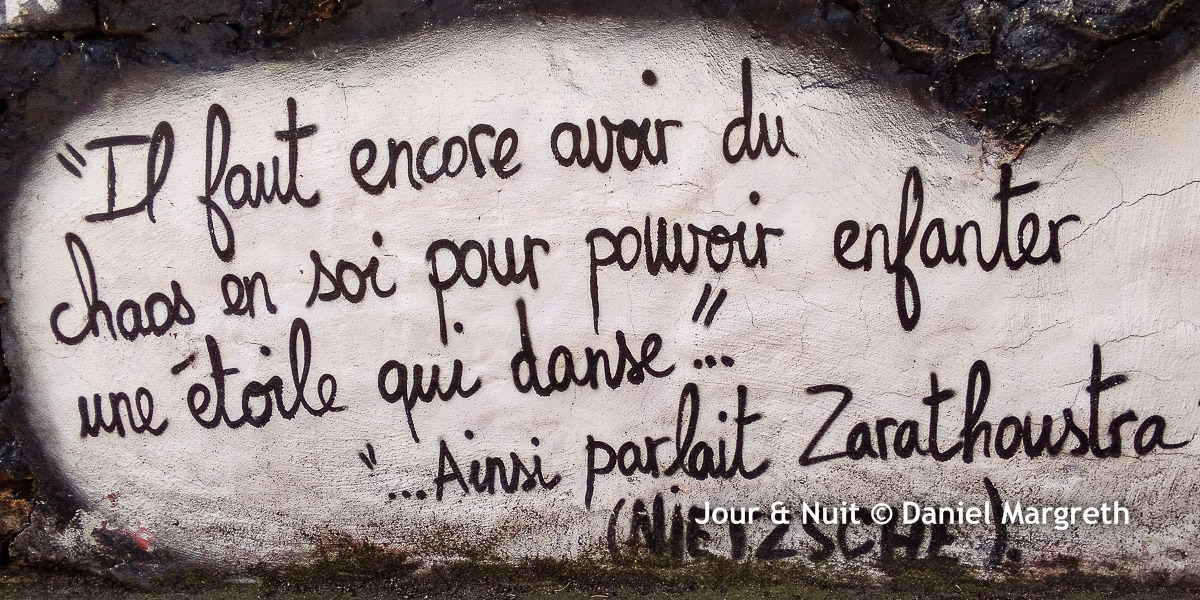 "Il faut encore avoir du
chaos en soi pour pouvoir enfanter
une étoile qui danse"...
"...Ainsi parlait Zarathoustra"
(NIETZSCHE).
Jour & Nuit © Daniel Margreth